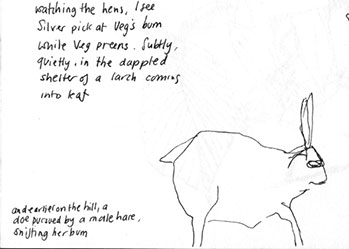 watching the hens, I see
Silver pick at Veg's bum
while Veg preens. Subtly,
quietly. in the dappled
shelter of a larch coming
into leaf
and earlier on the hill, a
doe pursued by a male hare,
sniffing her bum